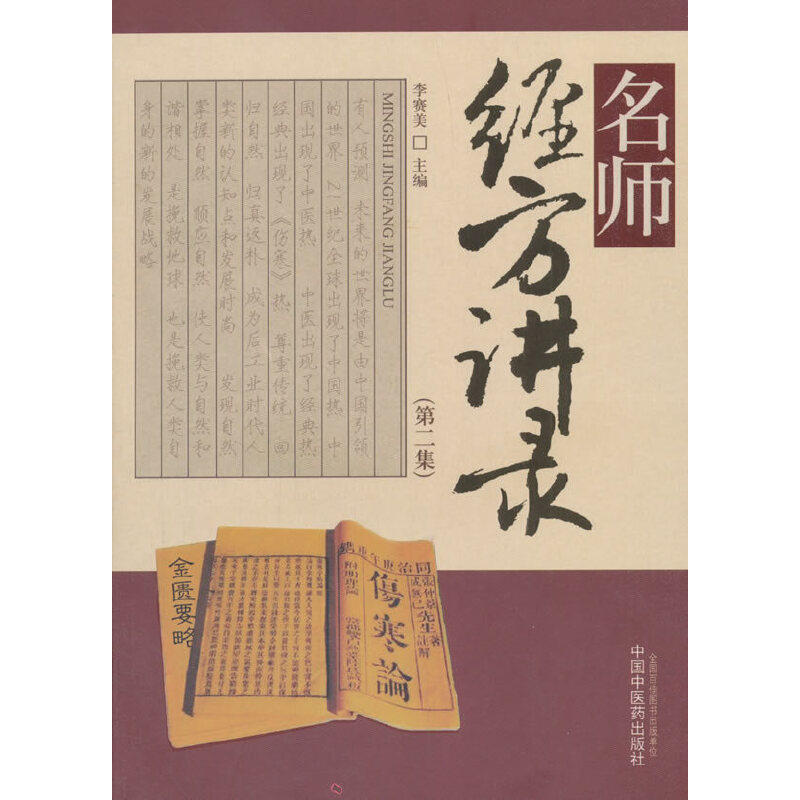 名师
经方讲录
(第二集)
李赛美 □ 主编
MINGSHI JINGFANG JIANGLU
有人预测 未来的世界将是由中国引领
的世界 21世纪全球出现了中国热 中
国出现了中医热 中医出现了经典热
经典出现了《伤寒》热 尊重传统 回
归自然 归真返朴 成为后工业时代人
类新的认知点和发展时尚 发现自然
掌握自然 顺应自然 使人类与自然和
谐相处 是挽救地球 也是挽救人类自
身的新的发展战略
金匮要略
同治庚午年
張仲景著
成無己先生註解
傷寒論
附明理論
全国百佳图书出版单位
中国中医药出版社